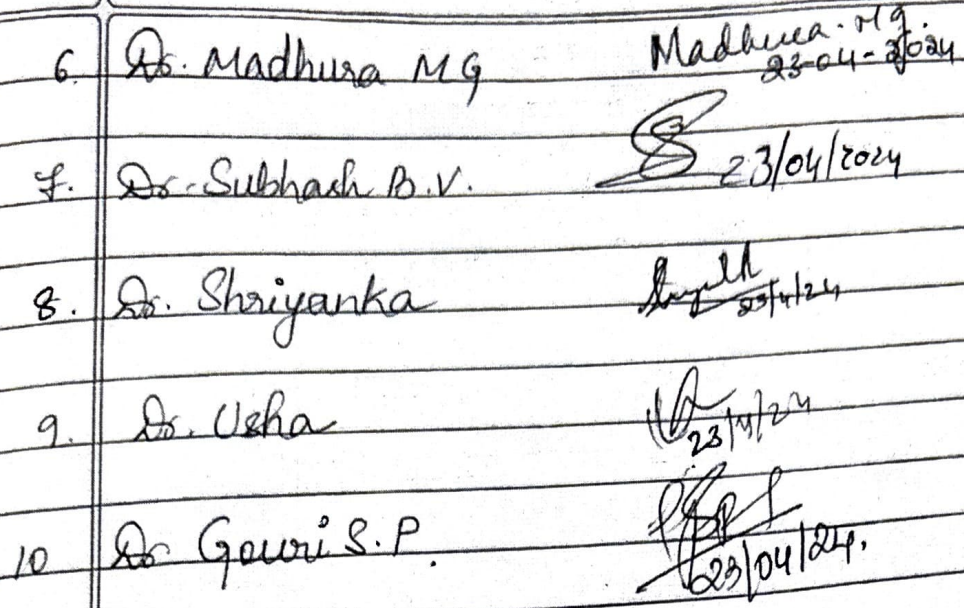 6. Dr. Madhura M G Madhura. M G.
23-04-2024
7. Dr. Subhash B.V. 23/04/2024
8. Dr. Shriyanka 23/4/24
9. Dr. Usha 23/4/24
10 Dr Gouri S.P. 23/04/24.